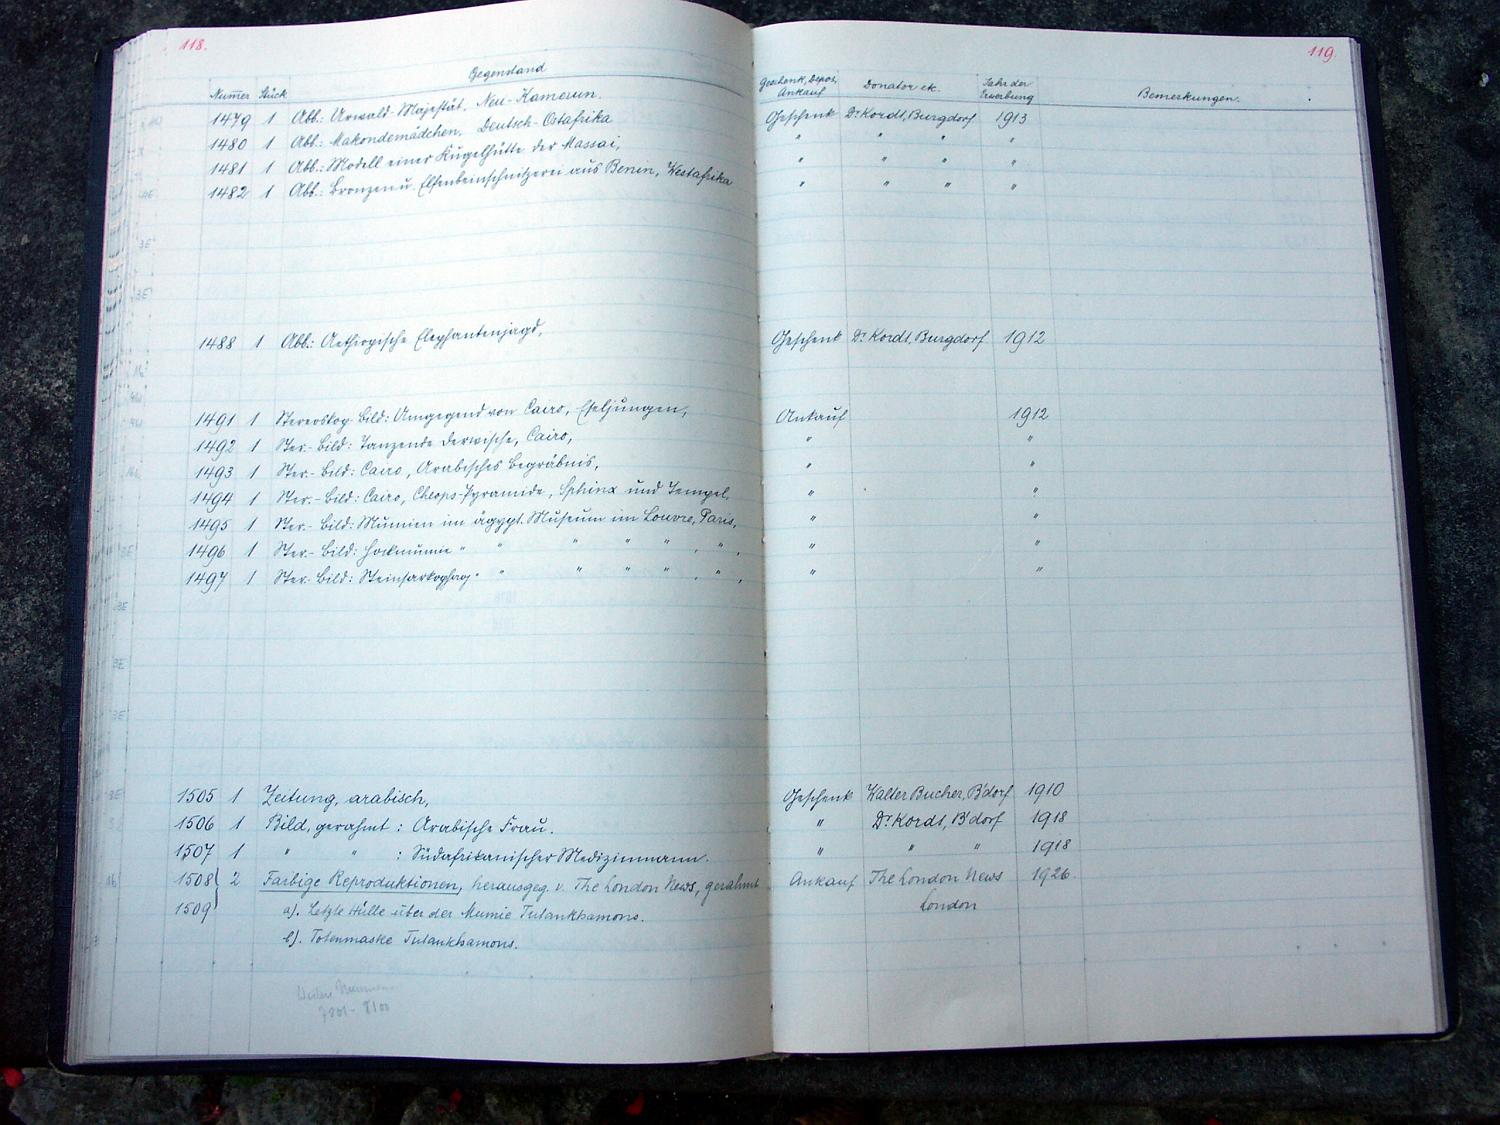 118.
119.
Gegenstand
Numer Stück
Geschenk, Depos, Ankauf
Donator etc.
Jahr der Erwerbung
Bemerkungen.
1479 1 Abb.: Urwald-Majestät, Neu-Kamerun. Geschenk Dr Kordt, Burgdorf 1913
1480 1 Abb.: Makondemädchen, Deutsch-Ostafrika " " " "
1481 1 Abb.: Modell einer Kugelhütte der Massai, " " " "
1482 1 Abb.: Bronzen u. Elfenbeinschnitzerei aus Benin, Westafrika " " " "
1488 1 Abb.: Aethiopische Elephantenjagd, Geschenk Dr Kordt, Burgdorf 1912
1491 1 Stereoskop-Bild: Umgegend von Cairo, Eseljungen, Ankauf 1912
1492 1 Ster.-Bild: Tanzende Derwische, Cairo, " "
1493 1 Ster.-Bild: Cairo, Arabisches Begräbnis, " "
1494 1 Ster.-Bild: Cairo, Cheops-Pyramide, Sphinx und Tempel, " "
1495 1 Ster.-Bild: Mumien im ägypt. Museum im Louvre, Paris, " "
1496 1 Ster.-Bild: Hockmumie " " " " " , " , " "
1497 1 Ster.-Bild: Steinsarkophag " " " " " , " , " "
1505 1 Zeitung, arabisch, Geschenk Walter Bucher, B'dorf 1910
1506 1 Bild, gerahmt : Arabische Frau. " Dr Kordt, B'dorf 1918
1507 1 " " : Südafrikanischer Medizinmann. " " " 1918
1508 2 Farbige Reproduktionen, herausgeg. v. The London News, gerahmt Ankauf The London News 1926.
1509 a). Letzte Hülle über der Mumie Tutankhamons. London
b). Totenmaske Tutankhamons.
7801 - 8100